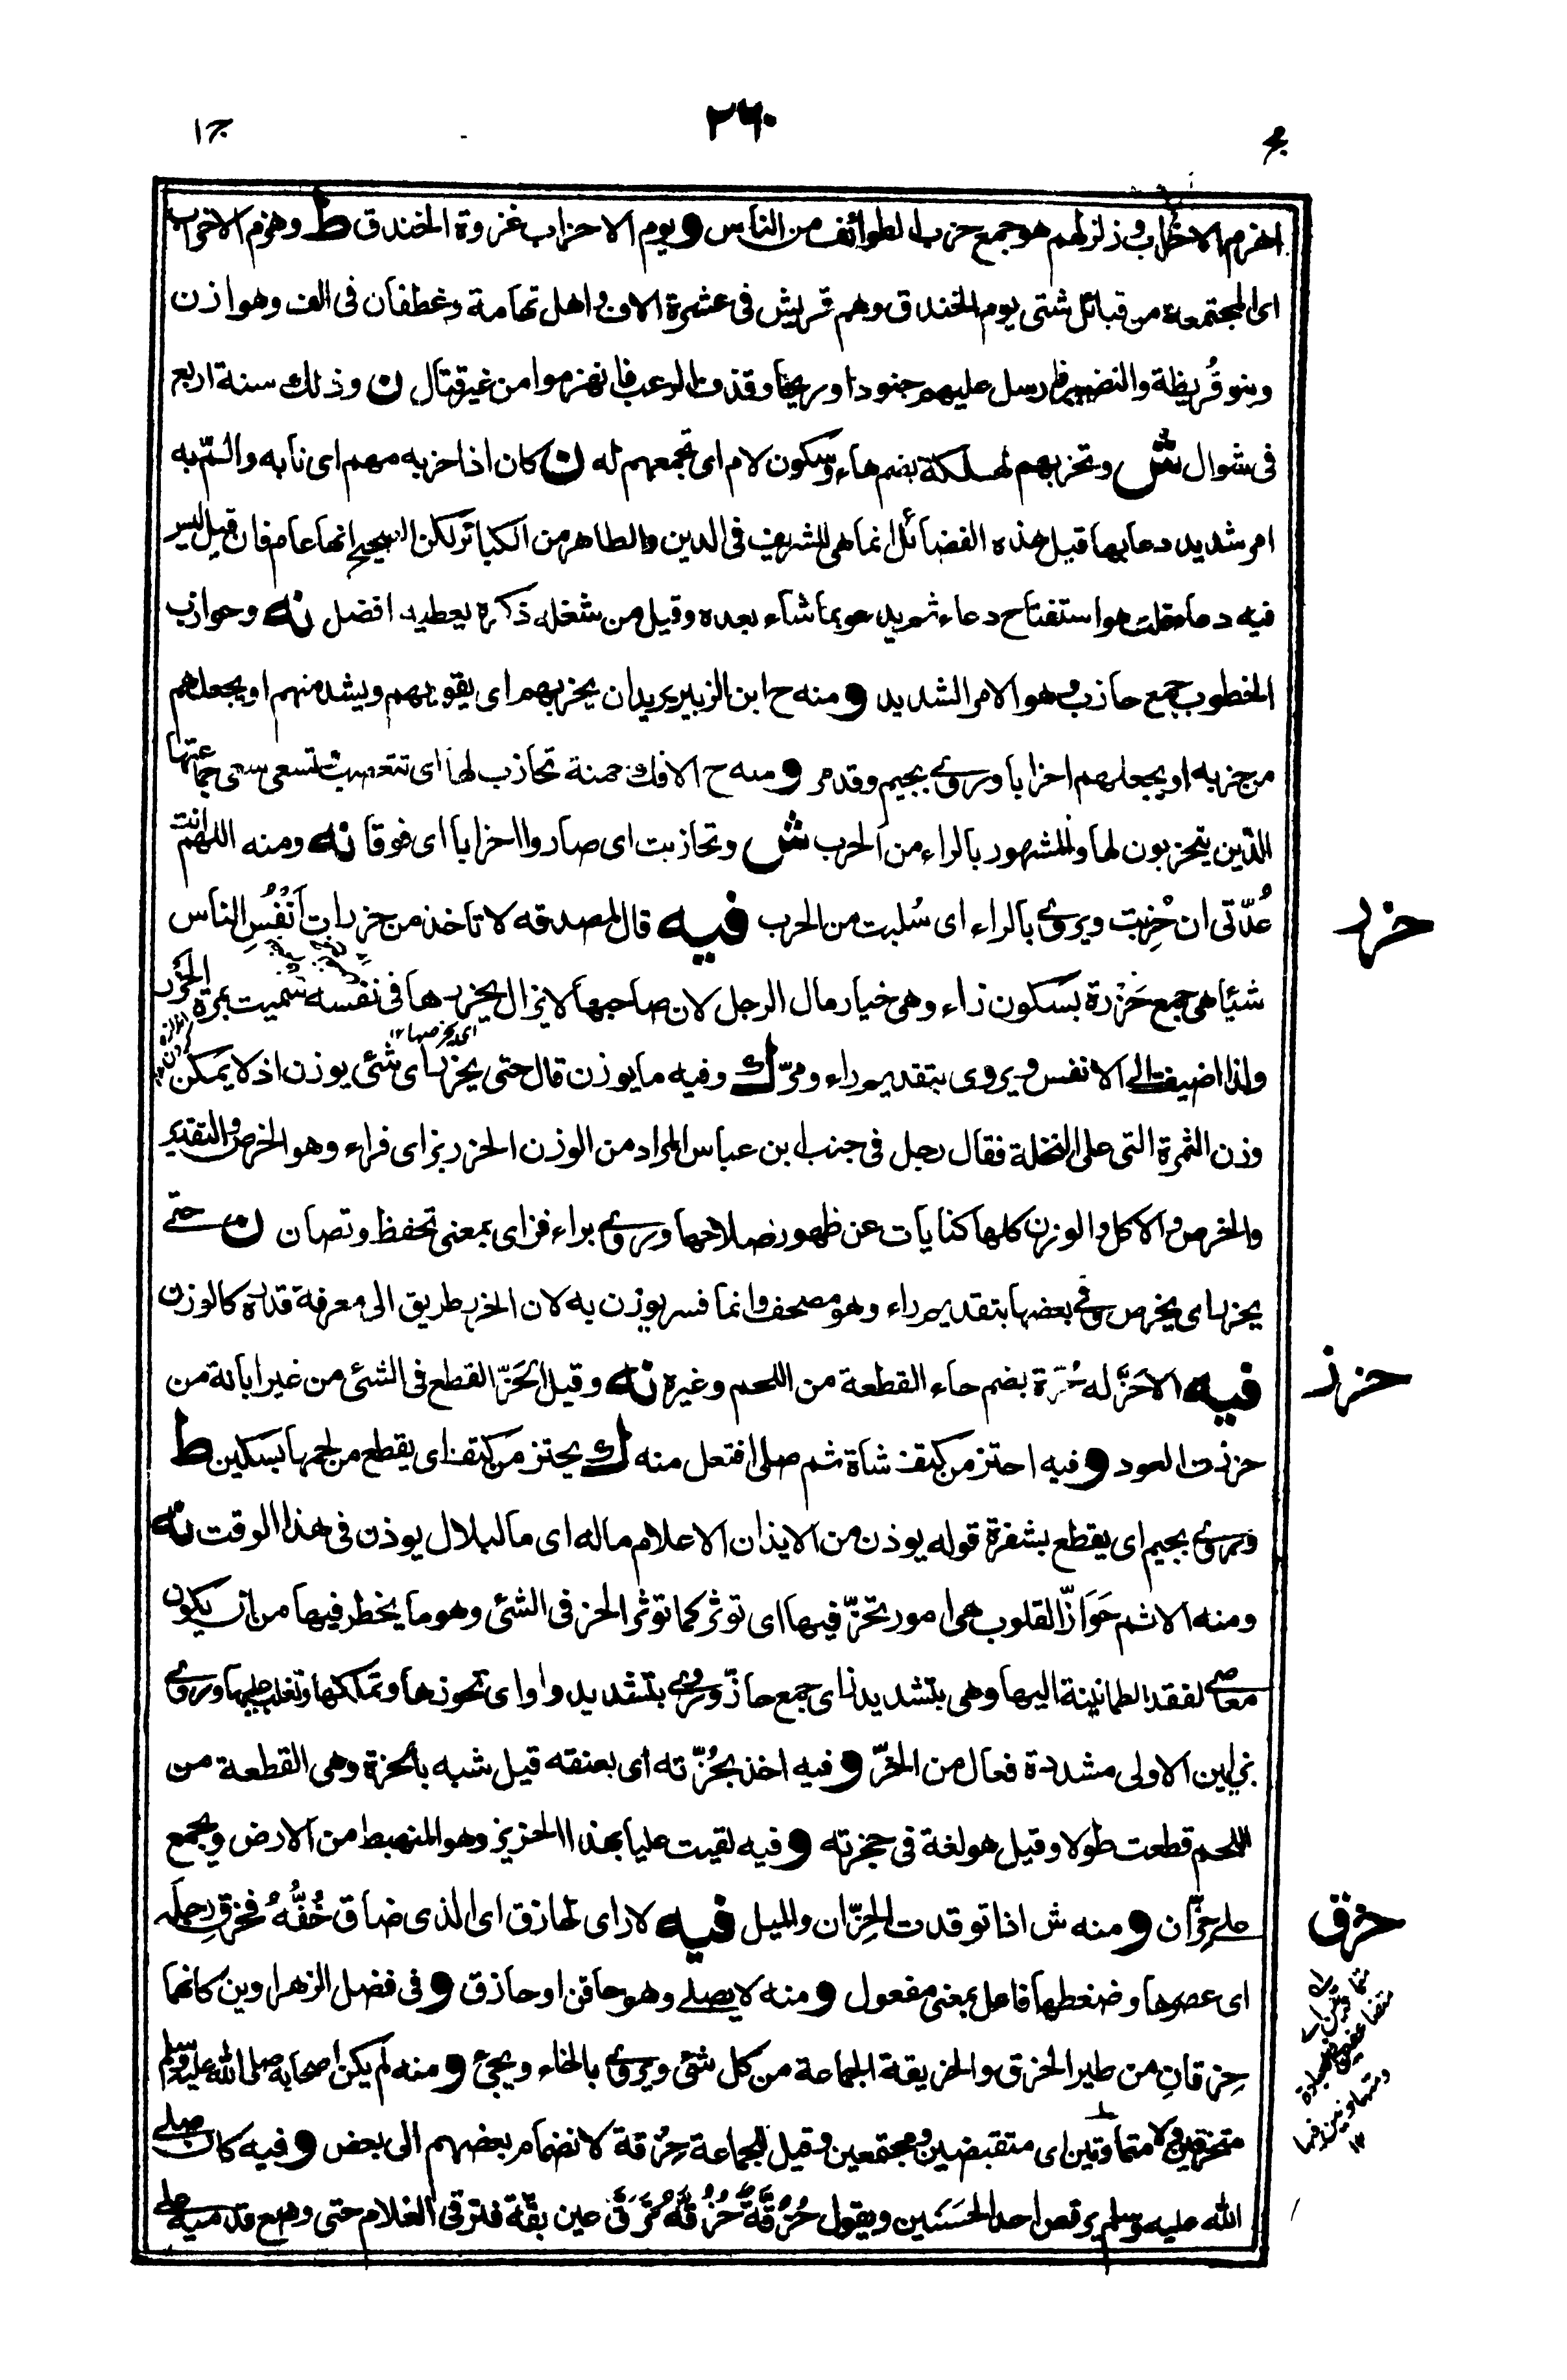 ج١
٢٦٠
اهزم الاحزاب وزلزلهم هو جمع حزب الطوائف من الناس و يوم الاحزاب غزوة الخندق ط وهزم الاحزاب
اى المجتمعة من قبائل شتى يوم الخندق وهم قريش فى عشرة الاف و اهل تهامة وغطفان فى الف وهوازن
وبنو قُريظة والنضير فارسل عليهم جنودا وريحا وقذف الرعب فانهزموا من غير قتال ن وذلك سنة اربع
فى شوال ش وتحزبهم لهلكة بضم هاء وسكون لام اى تجمعهم له ن كان اذا حزبه مهم اى نابه والمّ به
امر شديد دعا بها قيل هذه الفضائل انما هى للشريف فى الدين والطاهر من الكبائر لكن الصحيح انها عام فان قيل ليس
فيه دعاء قلت هو استفتاح دعاء ثم يدعو بما شاء بعده وقيل من شغله ذكره يعطيه افضل نه وحوازب
الخطوب جمع حازب وهو الامر الشديد و منه ح ابن الزبير يريد ان يحزبهم اى يقويهم ويشد منهم او يجعلهم
من حزبه او يجعلهم احزابا وروى بجيم وقد مر و منه ح الافك حمنة تحازب لها اى تتعصب تسعى سعى جماعتها
الذين يتحزبون لها والمشهور بالراء من الحرب ش وتحازبت اى صاروا احزابا اى فوقا نه ومنه اللهم انت
عُدّتى ان حُزِبت ويروى بالراء اى سُلبت من الحرب فيه قال لمصدقه لا تاخذ من حزرات اَنْفُسِ الناس
حزر
شيئا هى جمع حَزْرة بسكون زاء وهى خيار مال الرجل لان صاحبها لا يزال يحزرها فى نفسه سميت بمرة الحَزْر
اى يخرصها ١٢
ولذا اضيفت الى الانفس ويروى بتقديم راء ومرّ ك وفيه ما يوزن قال حتى يحزر اى شئ يوزن اذ لا يمكن
وزن الثمرة التى على النخلة فقال رجل فى جنب ابن عباس المراد من الوزن الحزر بزاى فراء وهو الخرص والتقدير
والخرص والاكل والوزن كلها كنايات عن ظهور صلاحها وروى براء فزاى بمعنى تحفظ وتصان ن حتى
يحزر اى يخرص وفى بعضها بتقديم راء وهو مصحف وانما فسر يوزن به لان الحزر طريق الى معرفة قدره كالوزن
فيه الا حَزَّ له حُزّة بضم حاء القطعة من اللحم وغيره نه وقيل الحَزّ القطع فى الشئ من غير ابانة من
حزز
حززت العود و فيه احتز من كتف شاة ثم صلى افتعل منه ك يحتز من كتف اى يقطع من لحمها بسكين ط
وروى بجيم اى يقطع بشفرة قوله يوذن من الايذان الاعلام ماله اى ما لبلال يوذن فى هذا الوقت نه
ومنه الاثم حَوَازّ القلوب هى امور تحزّ فيها اى توثر كما توثر الحز فى الشئ وهو ما يخطر فيها من ان يكون
معاصى لفقد الطمانينة اليها وهى بتشديد زاى جمع حازّ وروى بتشديد واو اى تحوزها وتملكها وتغلب عليها وروى
بزايين الاولى مشددة فعال من الحزّ و فيه اخذ بحُزّته اى بعنقه قيل شبه بالحزة وهى القطعة من
اللحم قطعت طولا وقيل هو لغة فى حجزته و فيه لقيت عليا بهذا الحزيز وهو المنهبط من الارض ويجمع
على حِزّان و منه ش اذا توقدت الحِزّان والميل فيه لا راى لحازق اى الذى ضاق خُفُّهُ فحزق رجله
حزق
اى عصرها وضغطها فاعل بمعنى مفعول و منه لا يصلى وهو حاقن او حازق و فى فضل الزهراوين كانهما
حِزقانِ من طير الحزق والحزيقة الجماعة من كل شئ ويروى بالخاء ويجئ و منه لم يكن اصحابه صلى الله عليه وسلم
متحزقين ولا متماوتين اى متقبضين ومجتمعين وقيل للجماعة حِزقة لانضمام بعضهم الى بعض و فيه كان صلى
الله عليه وسلم يرقص احد الحَسَنَين ويقول حُزُقَّةٌ حُزُقَّهُ تَرَقَّ عين بقّة فترقى الغلام حتى وضع قدميه على